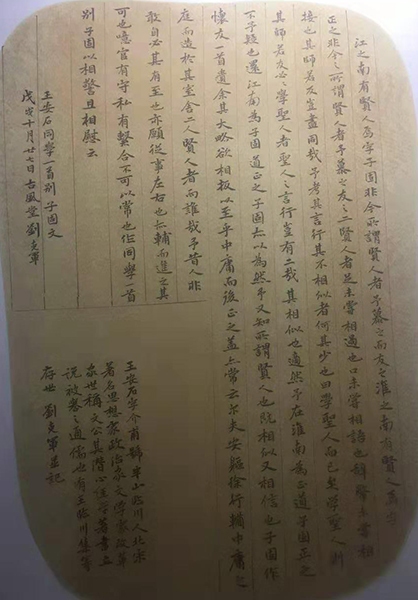 江之南有賢人焉字子固非今所謂賢人者予慕之而友之淮之南有賢人焉字
正之非今之所謂賢人者予慕之友之二賢人者足未嘗相過也口未嘗相語也辭幣未嘗相
接也其師若友豈盡同哉予考其言行其不相似者何其少也曰學聖人而已矣學聖人則
其師若友必學聖人者聖人之言行豈有二哉其相似也適然予在淮南為正之道子固正之
不予疑也還江南為子固道正之子固亦以為然予又知所謂賢人也既相似又相信也子固作
懷友一首遺余其大略欲相扳以至乎中庸而後正之蓋亦常云尔夫安驅徐行轥中庸之
庭而造於其室舍二人賢人者而誰哉予昔人非
敢自必其有至也亦願從事左右也亦輔而進之其
可也噫官有守私有繫合不可以常也作同學一首
別子固以相警且相慰云
王安石同學一首別子固文
戊寅十月廿七日古風堂劉文軍
王安石字介甫號半山臨川人北宋
著名思想家政治家文學家改革
家世稱文公其潛心經學著書立
說被譽之通儒也有王臨川集等
存世 劉文軍並記